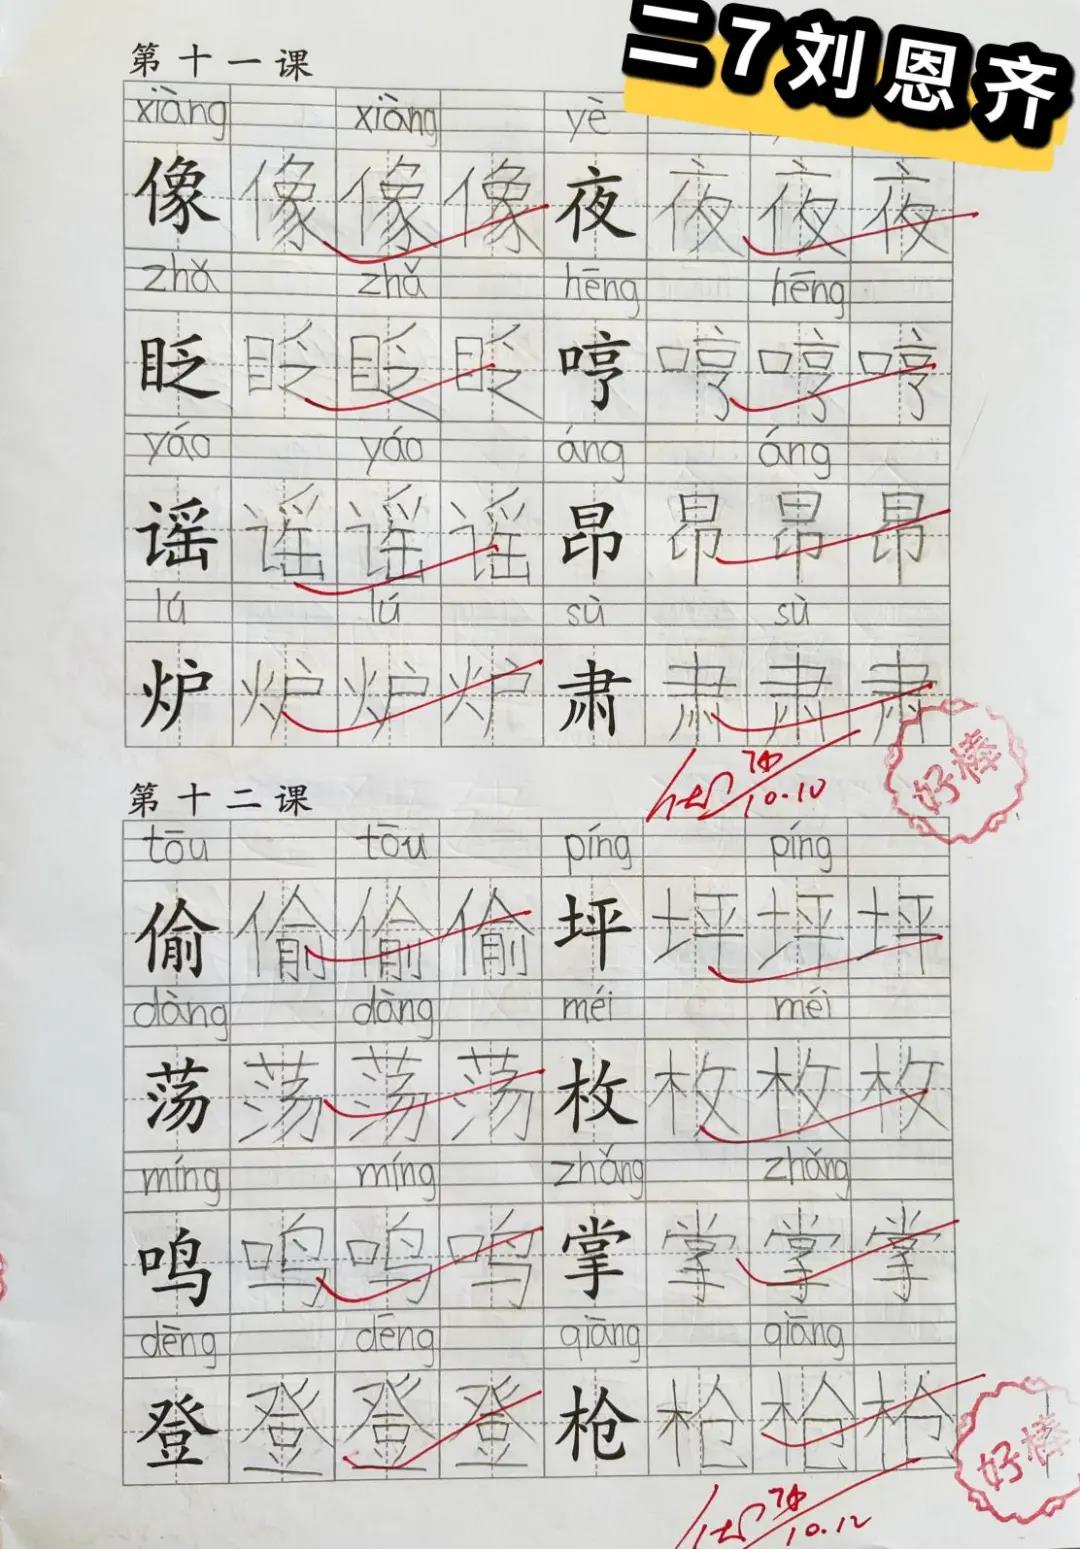 二7刘恩齐
第十一课
xiàng xiàng yè
像 像 像 像 夜 夜 夜 夜
zhǎ zhǎ hēng hēng
眨 眨 眨 眨 哼 哼 哼 哼
yáo yáo áng áng
谣 谣 谣 谣 昂 昂 昂 昂
lú lú sù sù
炉 炉 炉 炉 肃 肃 肃 肃
10.10
好棒
第十二课
tōu tōu píng píng
偷 偷 偷 偷 坪 坪 坪 坪
dàng dàng méi méi
荡 荡 荡 荡 枚 枚 枚 枚
míng míng zhǎng zhǎng
鸣 鸣 鸣 鸣 掌 掌 掌 掌
dēng dēng qiāng qiāng
登 登 登 登 枪 枪 枪 枪
10.12
好棒